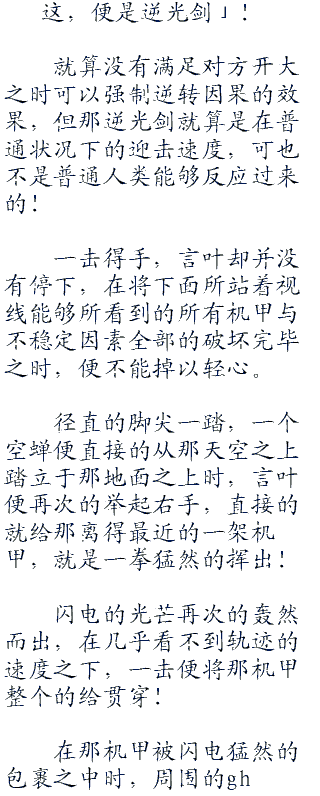 这，便是逆光剑」！
就算没有满足对方开大
之时可以强制逆转因果的效
果，但那逆光剑就算是在普
通状况下的迎击速度，可也
不是普通人类能够反应过来
的！
一击得手，言叶却并没
有停下，在将下面所站着视
线能够所看到的所有机甲与
不稳定因素全部的破坏完毕
之时，便不能掉以轻心。
径直的脚尖一踏，一个
空蝉便直接的从那天空之上
踏立于那地面之上时，言叶
便再次的举起右手，直接的
就给那离得最近的一架机
甲，就是一拳猛然的挥出！
闪电的光芒再次的轰然
而出，在几乎看不到轨迹的
速度之下，一击便将那机甲
整个的给贯穿！
在那机甲被闪电猛然的
包裹之中时，周围的gh